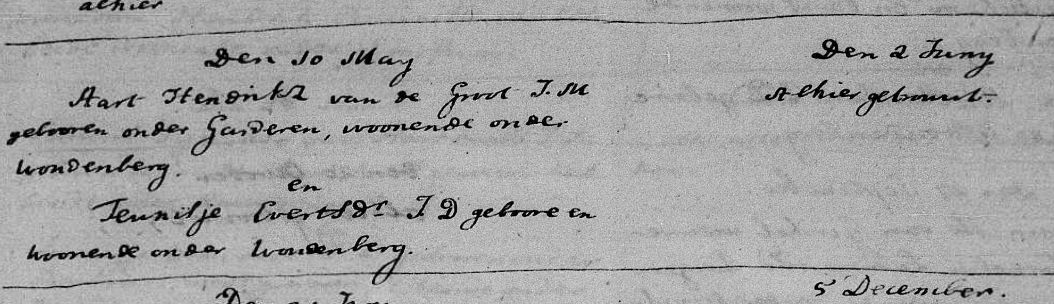 alhier
Den 10 May
Aart Hendrikz van de Groot J. M
gebooren onder Garderen, woonende onder
woudenberg.
en
Teunisje Evertsdr J D geboore en
woonende onder woudenberg.
Den 2 Juny
Alhier getrouwt.
5 December.